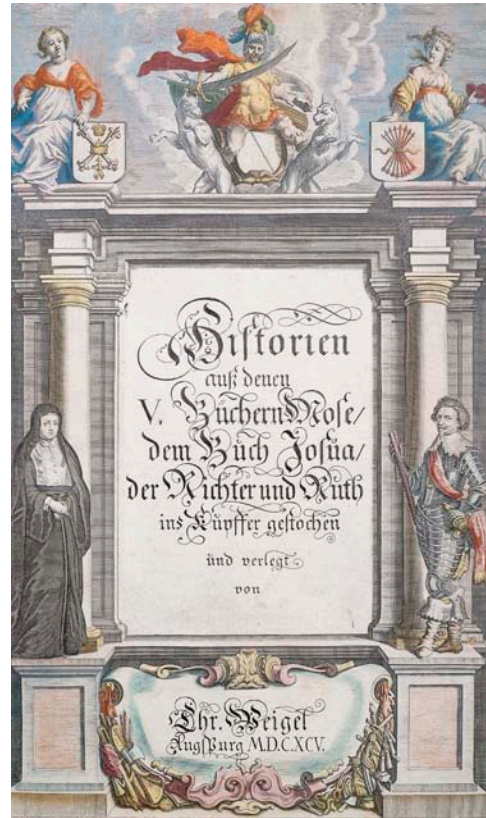 Historien
auß denen
V. Büchern Mose/
dem Büch Josüa/
der Richter und Rüth
ins Kupffer gestochen
ünd verlegt
von
Chr. Weigel
AugsPurg M.D.C.XCV.